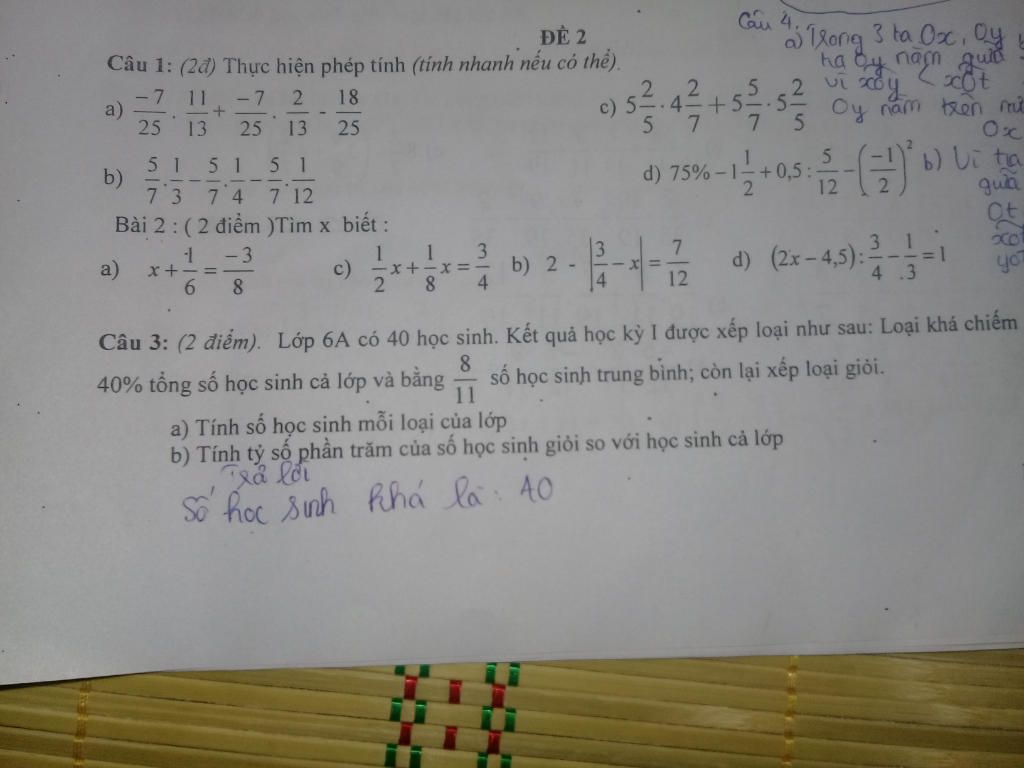 ĐỀ 2
Câu 1: (2đ) Thực hiện phép tính (tính nhanh nếu có thể).
a) -7/25 . 11/13 + -7/25 . 2/13 - 18/25
c) 5 2/5 . 4 2/7 + 5 5/7 . 5 2/5
b) 5/7 . 1/3 - 5/7 . 1/4 - 5/7 . 1/12
d) 75% - 1 1/2 + 0,5 : 5/12 - (-1/2)²
Bài 2 : ( 2 điểm )Tìm x biết :
a) x + 1/6 = -3/8 c) 1/2 x + 1/8 x = 3/4 b) 2 - |3/4 - x| = 7/12 d) (2x - 4,5) : 3/4 - 1/3 = 1
Câu 3: (2 điểm). Lớp 6A có 40 học sinh. Kết quả học kỳ I được xếp loại như sau: Loại khá chiếm
40% tổng số học sinh cả lớp và bằng 8/11 số học sinh trung bình; còn lại xếp loại giỏi.
a) Tính số học sinh mỗi loại của lớp
b) Tính tỷ số phần trăm của số học sinh giỏi so với học sinh cả lớp
Trả lời
Số học sinh khá là: 40
Câu 4.
a) Trong 3 tia Ox, Oy
Oy nằm giữa
vì xOy < xOt
Oy nằm trên
Ox
b) Vì tia
giữa
Ot
xOt